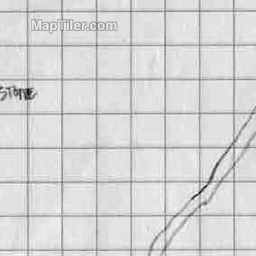 MapTiler.com
STONE